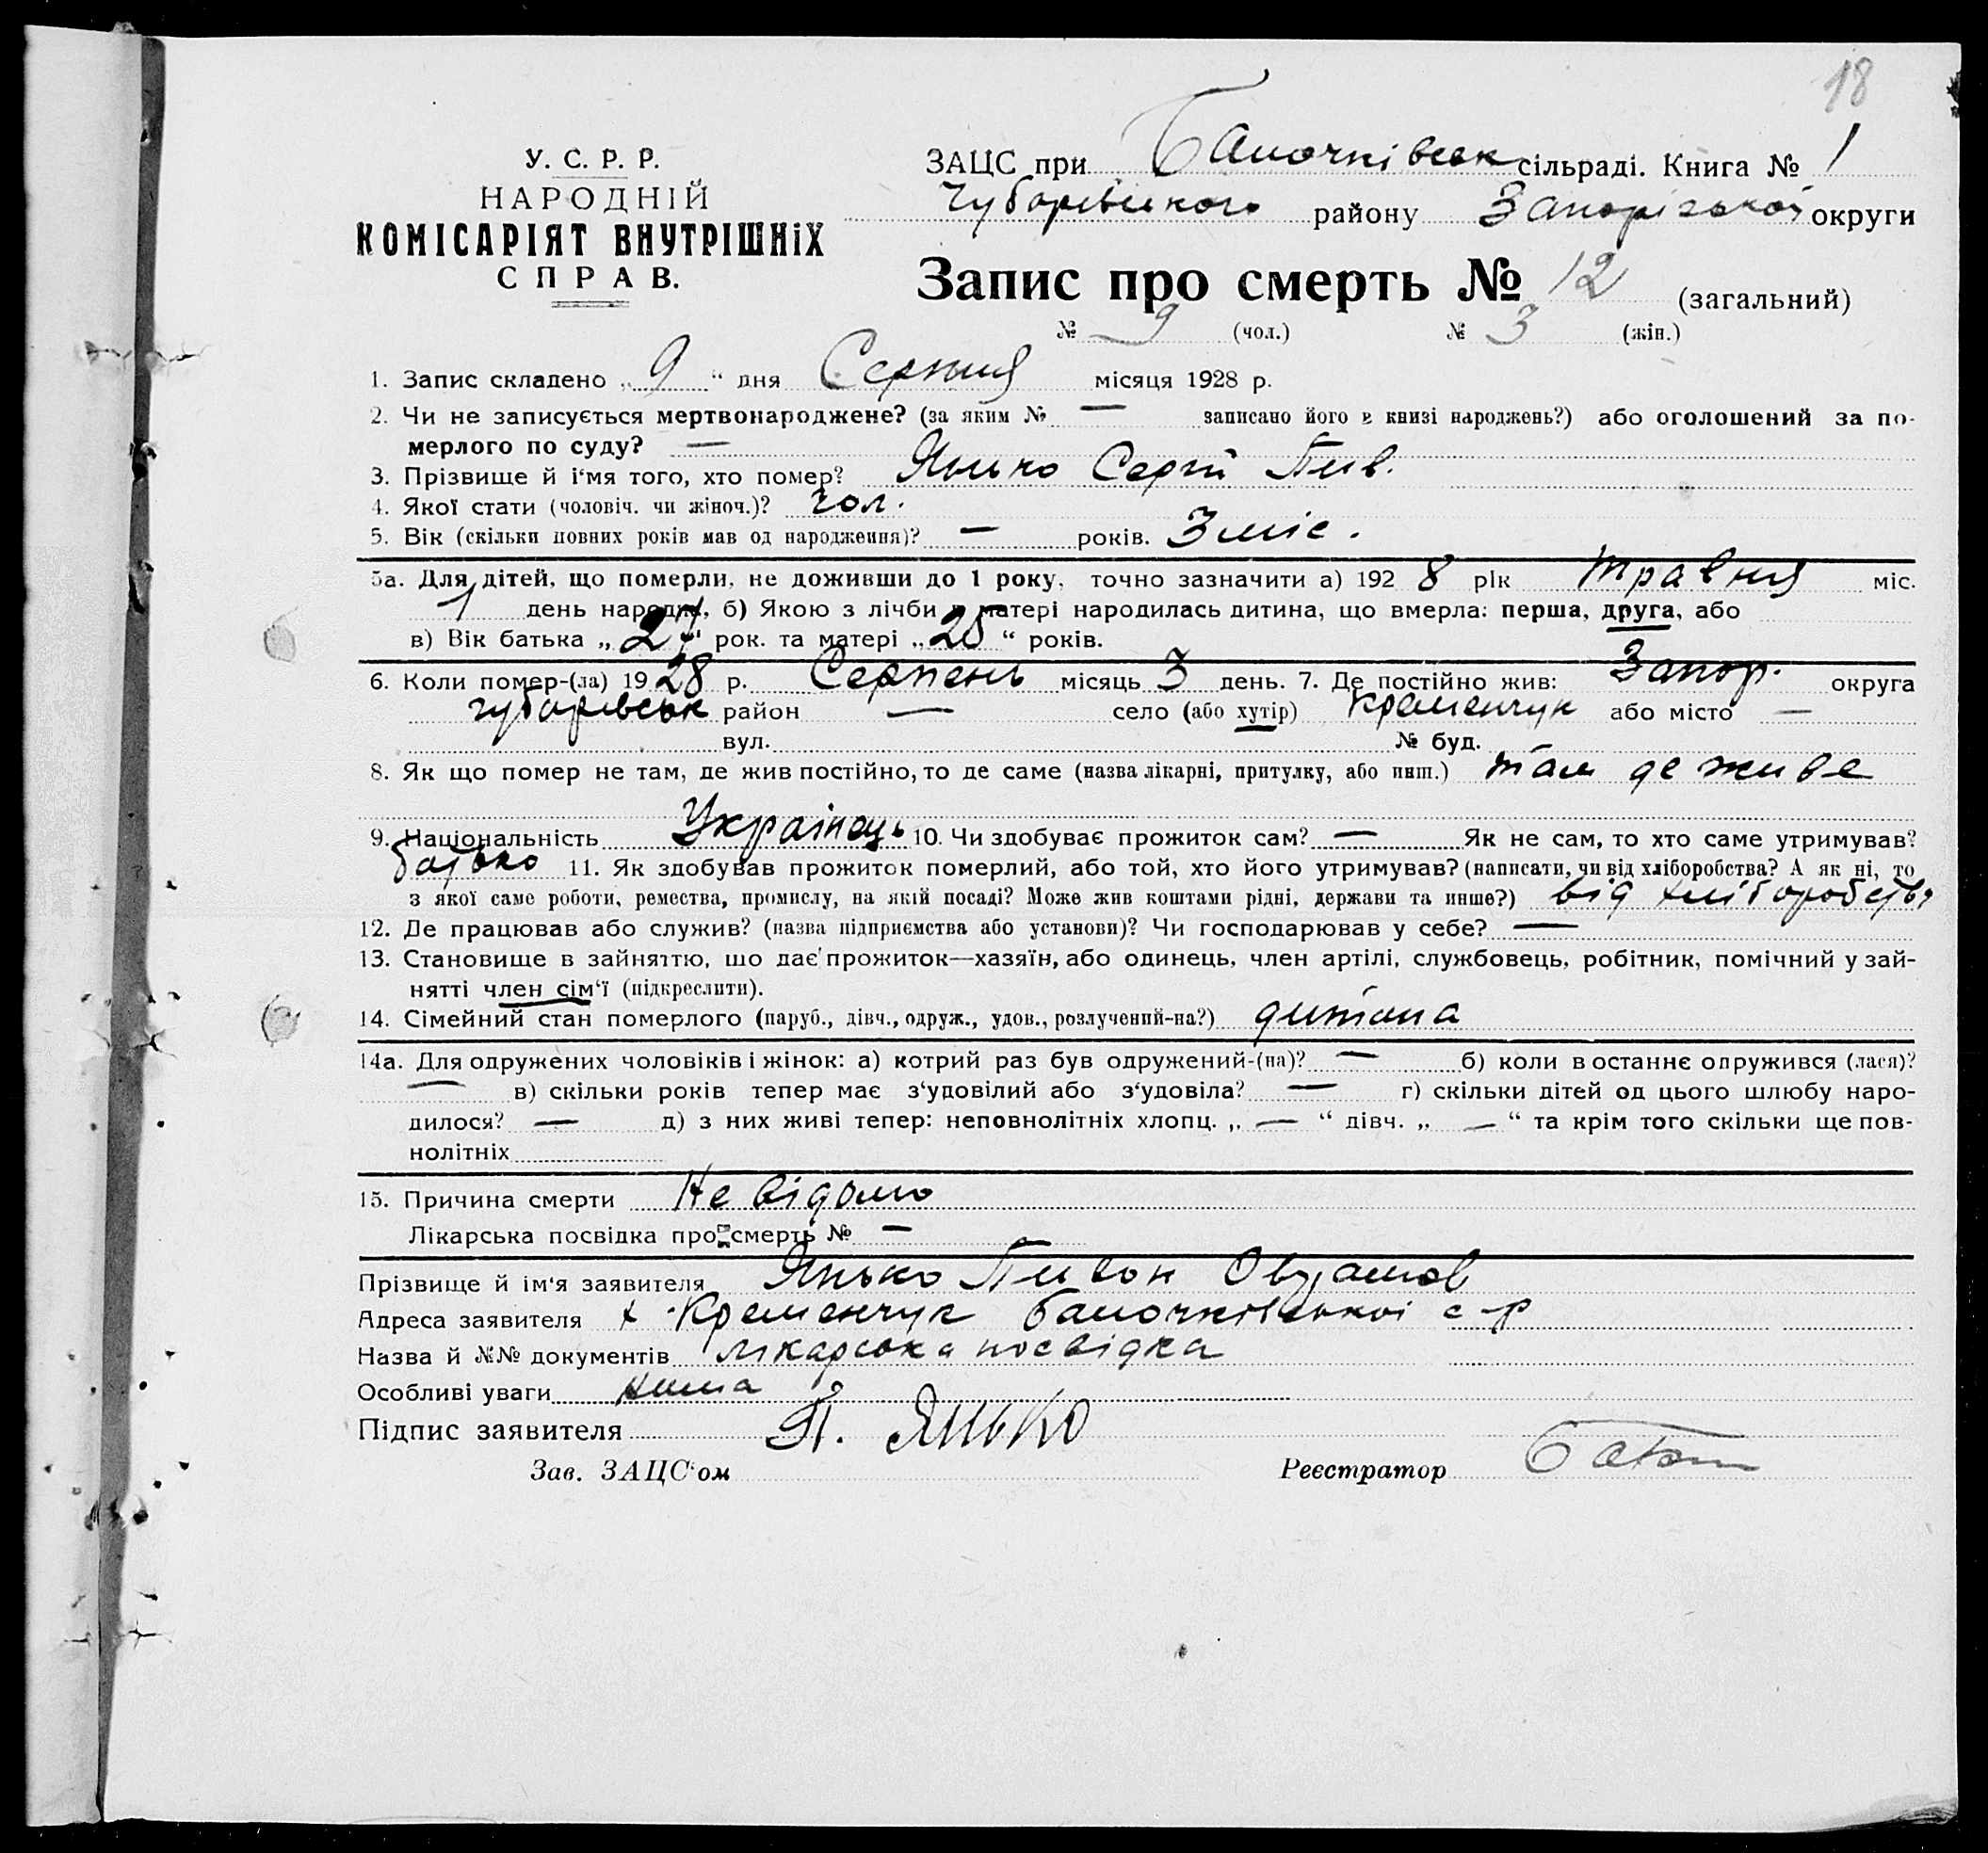 18
У. С. Р. Р.
НАРОДНІЙ
КОМІСАРІЯТ ВНУТРІШНІХ
СПРАВ.
ЗАЦС при Баночківськ сільраді. Книга № 1
Чубарівського району Запорізької округи
Запис про смерть № 12 (загальний)
№ 9 (чол.) № 3 (жін.)
1. Запис складено „ 9 “ дня Серпня місяця 1928 р.
2. Чи не записується мертвонароджене? (за яким № — записано його в книзі народжень?) або оголошений за по-
мерлого по суду? —
3. Прізвище й і‘мя того, хто помер? Янько Сергій Пив.
4. Якої стати (чоловіч. чи жіноч.)? чол.
5. Вік (скільки повних років мав од народження)? — років. 3 міс.
5а. Для дітей, що померли, не доживши до 1 року, точно зазначити а) 1928 рік Травня міс.
1 день народж., б) Якою з лічби у матері народилась дитина, що вмерла: перша, друга, або
в) Вік батька „ 27 “ рок. та матері „ 25 “ років.
6. Коли помер-(ла) 1928 р. Серпень місяць 3 день. 7. Де постійно жив: Запор. округа
Чубарівськ район — село (або хутір) Кременчук або місто —
вул. № буд.
8. Як що помер не там, де жив постійно, то де саме (назва лікарні, притулку, або инш.) там де живе
9. Національність Українець 10. Чи здобуває прожиток сам? — Як не сам, то хто саме утримував?
батько 11. Як здобував прожиток померлий, або той, хто його утримував? (написати, чи від хліборобства? А як ні, то
з якої саме роботи, ремества, промислу, на якій посаді? Може жив коштами рідні, держави та инше?) від хліборобства
12. Де працював або служив? (назва підприємства або установи)? Чи господарював у себе? —
13. Становище в зайняттю, що дає прожиток—хазяїн, або одинець, член артілі, службовець, робітник, помічний у зай-
нятті член сім‘ї (підкреслити).
14. Сімейний стан померлого (паруб., дівч., одруж., удов., розлучений-на?) дитина
14а. Для одружених чоловіків і жінок: а) котрий раз був одружений-(на)? — б) коли в останнє одружився (лася)?
— в) скільки років тепер має з‘удовілий або з‘удовіла? — г) скільки дітей од цього шлюбу наро-
дилося? — д) з них живі тепер: неповнолітніх хлопц. „ — “ дівч. „ — “ та крім того скільки ще пов-
нолітніх
15. Причина смерти Не відомо
Лікарська посвідка про смерть № —
Прізвище й ім‘я заявителя Янько Пивон
Адреса заявителя х. Кременчук Баночківської с-р
Назва й №№ документів лікарська посвідка
Особливі уваги нима
Підпис заявителя П. Янько
Зав. ЗАЦС‘ом Реєстратор